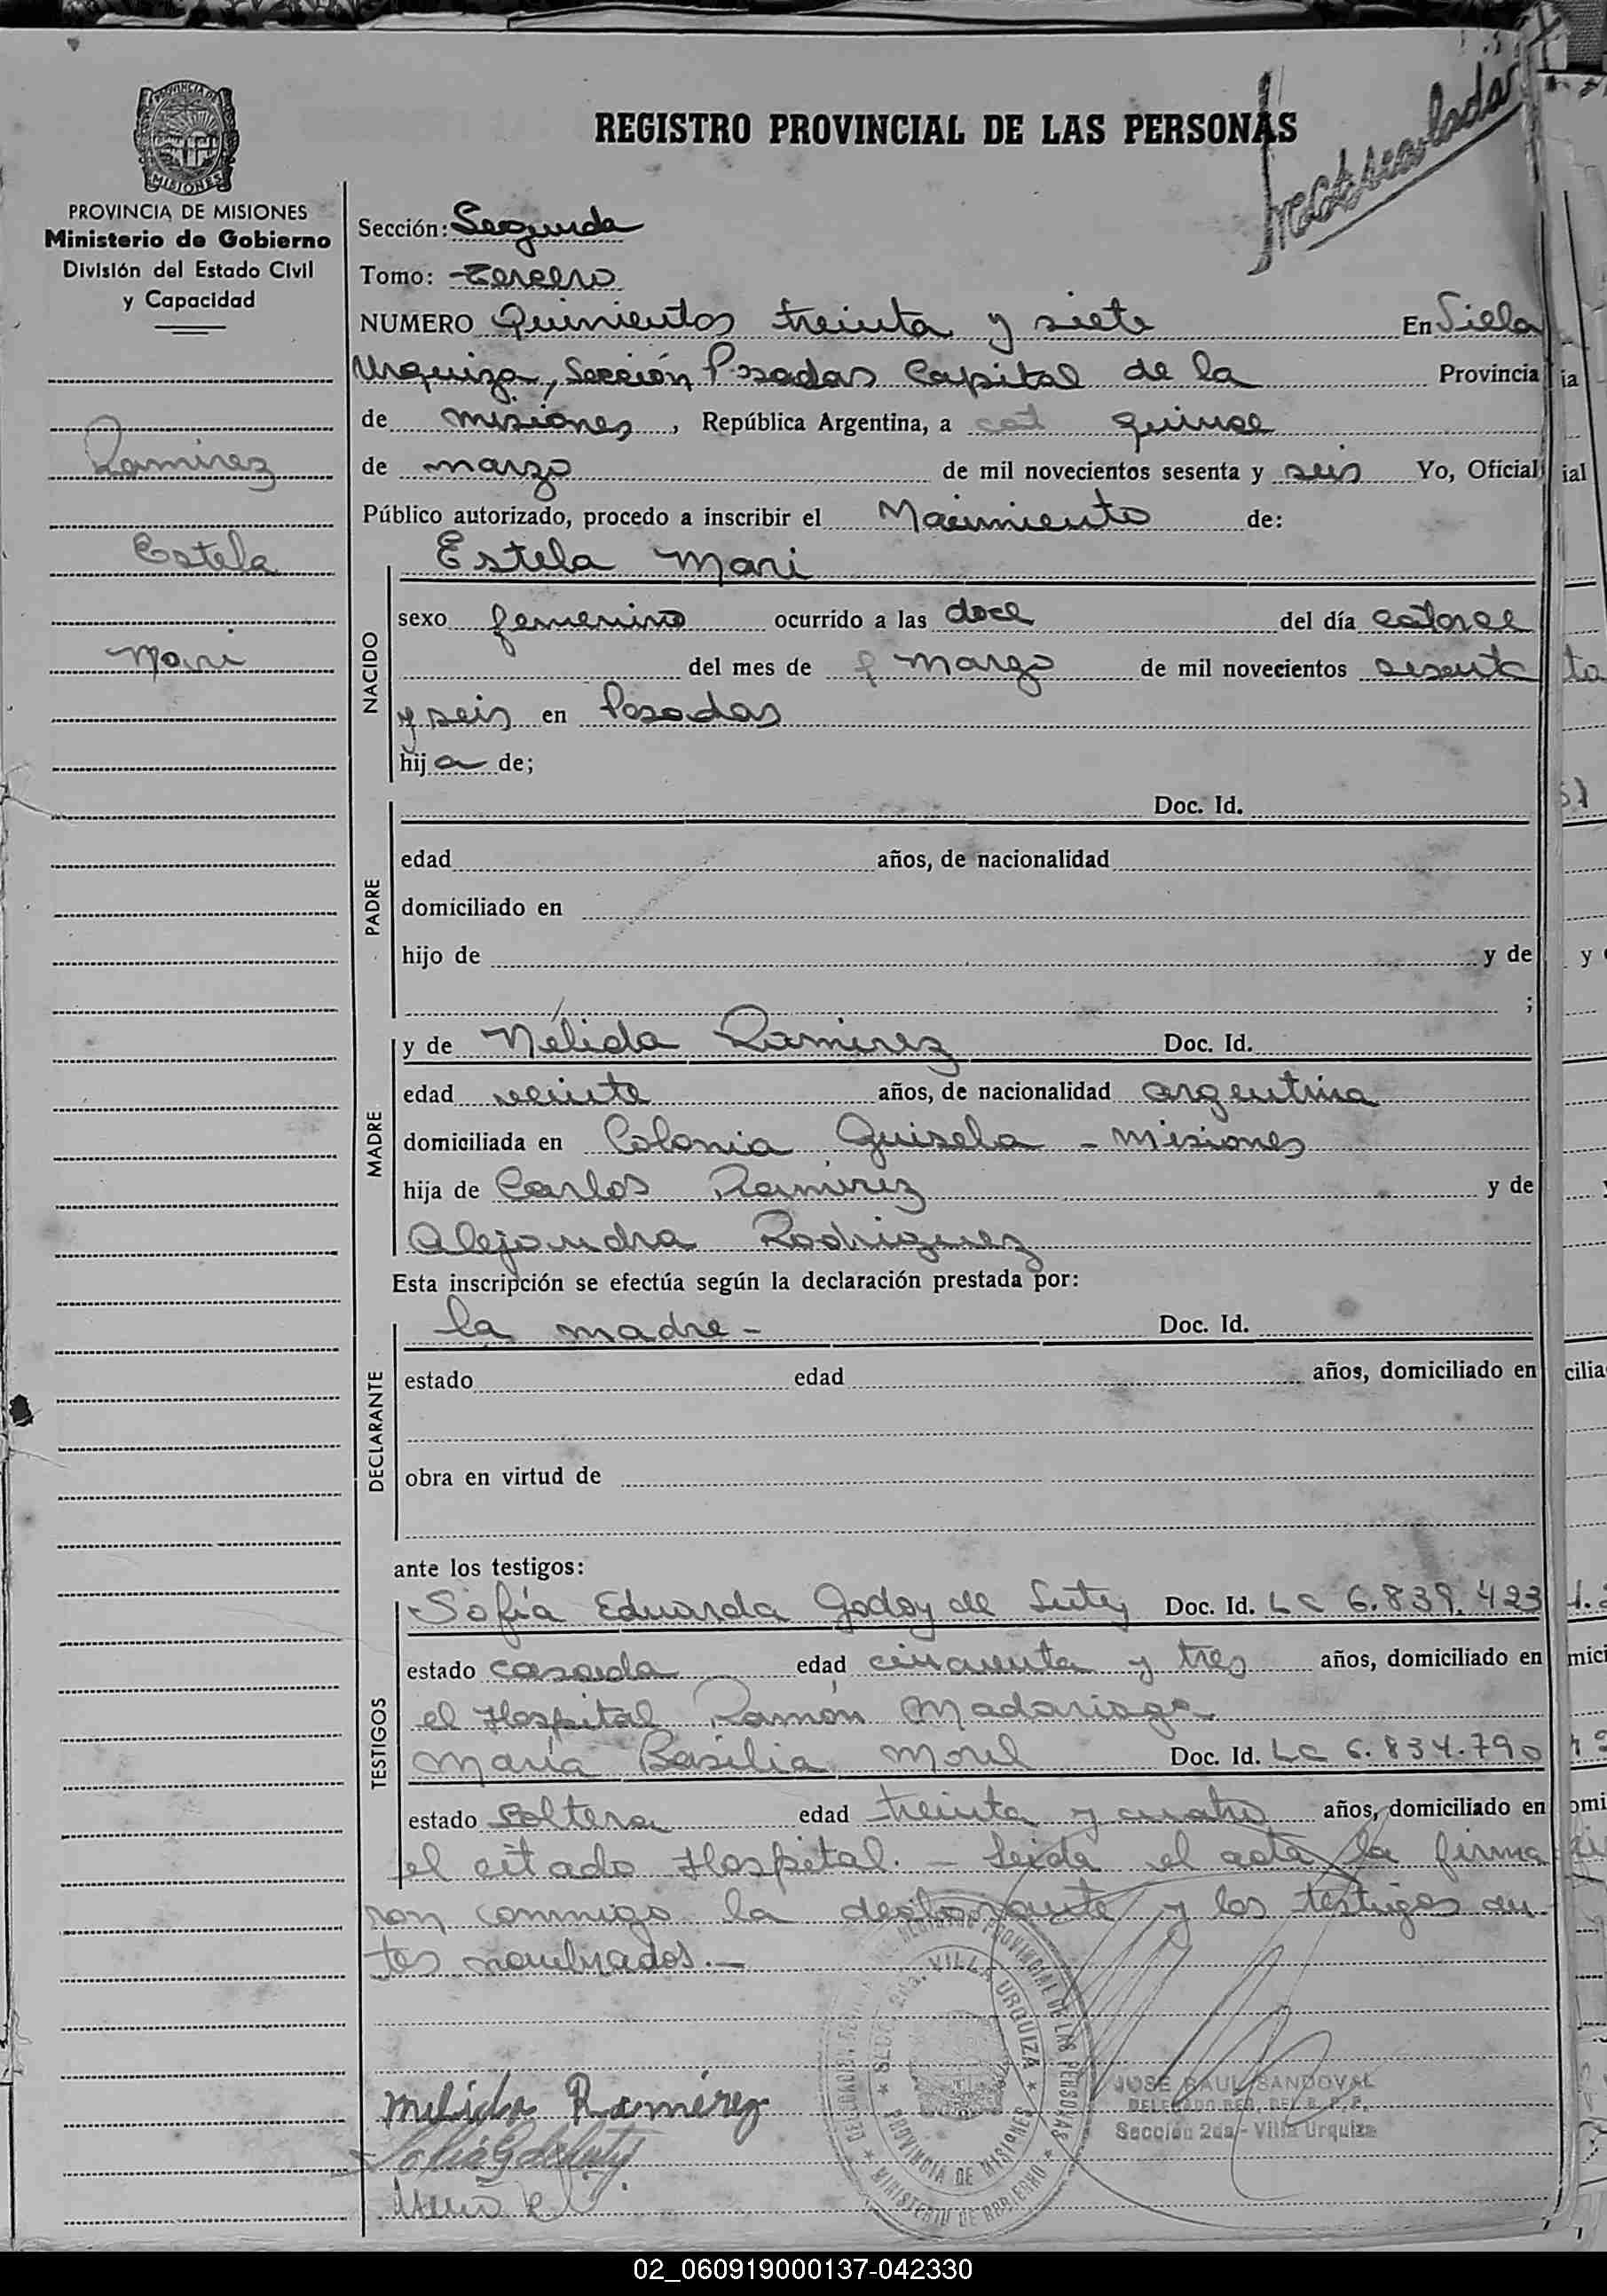 REGISTRO PROVINCIAL DE LAS PERSONAS
PROVINCIA DE
MISIONES
PROVINCIA DE MISIONES
Ministerio de Gobierno
División del Estado Civil
y Capacidad
Ramirez
Estela
Mari
Sección: Segunda
Tomo: Tercero
NUMERO Quinientos treinta y siete En Villa
Urquiza, Sección Posadas Capital de la Provincia
de misiones, República Argentina, a cat quince
de marzo de mil novecientos sesenta y seis Yo, Oficial
Público autorizado, procedo a inscribir el Nacimiento de:
NACIDO
Estela Mari
sexo femenino ocurrido a las doce del día catorce
del mes de marzo de mil novecientos sesenta
y seis en Posadas
hija de;
PADRE
Doc. Id.
edad años, de nacionalidad
domiciliado en
hijo de y de
;
MADRE
y de Nélida Ramirez Doc. Id.
edad veinte años, de nacionalidad argentina
domiciliada en Colonia Guisela - Misiones
hija de Carlos Ramirez y de
Alejandra Rodriguez
Esta inscripción se efectúa según la declaración prestada por:
DECLARANTE
la madre - Doc. Id.
estado edad años, domiciliado en
obra en virtud de
ante los testigos:
TESTIGOS
Sofía Eduarda Godoy de Doc. Id. LC 6.839.423
estado casada edad cincuenta y tres años, domiciliado en
el Hospital Ramón Madariaga
María Basilia Morel Doc. Id. LC 6.834.790
estado soltera edad treinta y cuatro años, domiciliado en
el citado Hospital. - Leida el acta la firma
ron conmigo la declarante y los testigos an
tes nombrados. -
REGISTRO PROVINCIAL DE LAS PERSONAS
SECC. 2da. VILLA URQUIZA
PROVINCIA DE MISIONES
MINISTERIO DE GOBIERNO
Melida Ramírez
JOSE RAUL SANDOVAL
Sección 2da - Villa Urquiza
02_060919000137-042330